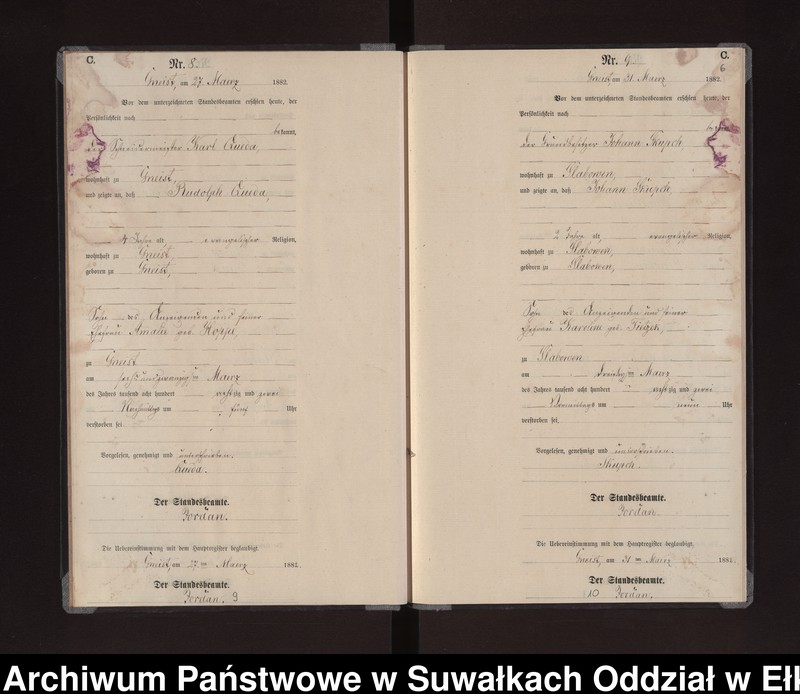 C.
Nr. 8
Gneist, am 27. Maerz 1882.
Vor dem unterzeichneten Standesbeamten erschien heute, der
Persönlichkeit nach
bekannt,
der Schneidermeister Karl
wohnhaft zu Gneist,
und zeigte an, daß Rudolph
4 Jahre alt evangelischer Religion,
wohnhaft zu Gneist,
geboren zu Gneist,
Sohn des Anzeigenden und seiner
Ehefrau Amalie geb.
zu Gneist
am sechsundzwanzigten Maerz
des Jahres tausend acht hundert achtzig und zwei
Nachmittags um fünf Uhr
verstorben sei.
Vorgelesen, genehmigt und unterschrieben.
Der Standesbeamte.
Jordan.
Die Uebereinstimmung mit dem Hauptregister beglaubigt.
Gneist, am 27ten Maerz 1882.
Der Standesbeamte.
Jordan. 9
C.
6
Nr. 9
Gneist, am 31. Maerz 1882.
Vor dem unterzeichneten Standesbeamten erschien heute, der
Persönlichkeit nach
der Grundbesitzer Johann Skupch
wohnhaft zu Slabowen,
und zeigte an, daß Johann Skupch,
2 Jahre alt evangelischer Religion,
wohnhaft zu Slabowen,
geboren zu Slabowen,
Sohn des Anzeigenden und seiner
Ehefrau Karoline geb.
zu Slabowen
am ten Maerz
des Jahres tausend acht hundert achtzig und zwei
Vormittags um neun Uhr
verstorben sei.
Vorgelesen, genehmigt und unterschrieben.
Skupch.
Der Standesbeamte.
Jordan.
Die Uebereinstimmung mit dem Hauptregister beglaubigt.
Gneist, am 31ten Maerz 1882.
Der Standesbeamte.
10 Jordan.
Archiwum Państwowe w Suwałkach Oddział w Eł